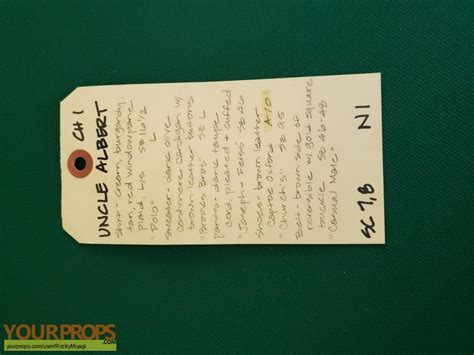 CH 1
UNCLE ALBERT
Shirt - cream, burgundy,
tan, red windowpane
plaid, L/S SZ 16 1/2
"Polo"
Sweater - dark olive
cashmere cardigan w/
brown leather buttons
"Brooks Bros" SZ L
pants - dark taupe
cord, pleated & cuffed
"Joseph + Feiss" SZ 46
Shoes - brown leather
Captoe Oxford A-10
"Church's" SZ 95
Belt - brown suede
reversible w/ gold square
buckle SZ 46-48
"Casual Male"
SC 7, 8 N1
YOURPROPS.COM
yourprops.com/user/RockyMiyagi